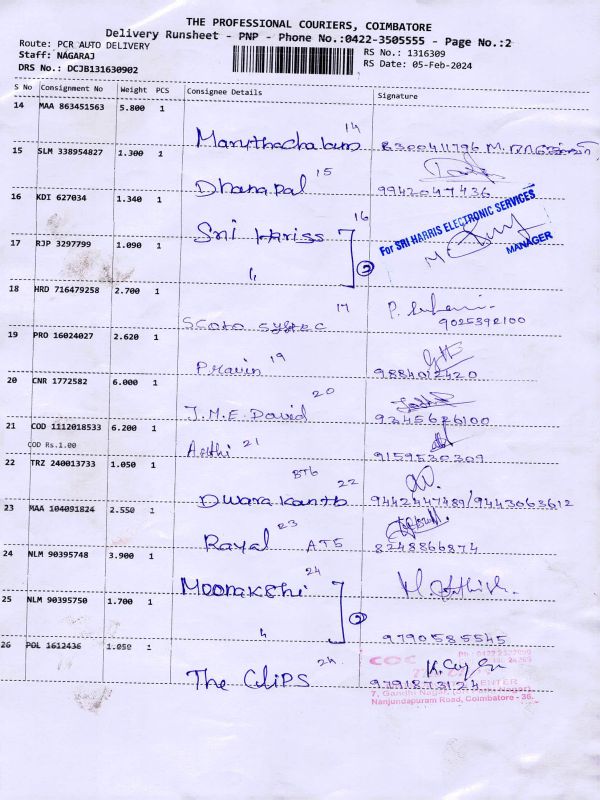 THE PROFESSIONAL COURIERS, COIMBATORE
Delivery Runsheet - PNP - Phone No.:0422-3505555 - Page No.:2
Route: PCR AUTO DELIVERY
Staff: NAGARAJ
DRS No.: DCJB131630902
RS No.: 1316309
RS Date: 05-Feb-2024
S No Consignment No Weight PCS Consignee Details Signature
14 MAA 863451563 5.800 1
Maruthachalam 14 8300411796 M.
15 SLM 338954827 1.300 1
Dhanapal 15 9942047436
16 KDI 627034 1.340 1
Sri Hariss 16
For SRI HARRIS ELECTRONIC SERVICES
MANAGER
17 RJP 3297799 1.090 1
" 2
18 HRD 716479258 2.700 1
Scoto System 17 9025392100
19 PRO 16024027 2.620 1
Pravin 19 9884012420
20 CNR 1772582 6.000 1
J.M.E. David 20 9245626100
21 COD 1112018533 6.200 1
COD Rs.1.00
Arthi 21 9159530309
22 TRZ 240013733 1.050 1
Dwarakanth BT6 22 9442447489/9443063612
23 MAA 104091824 2.550 1
Rayal 23 AT5 8248866874
24 NLM 90395748 3.900 1
Moonakshi 24
25 NLM 90395750 1.700 1
" 2 9790585545
26 POL 1612436 1.050 1
The Clips 9791873124
7, Gandhi Nagar,
Nanjundapuram Road, Coimbatore - 36.